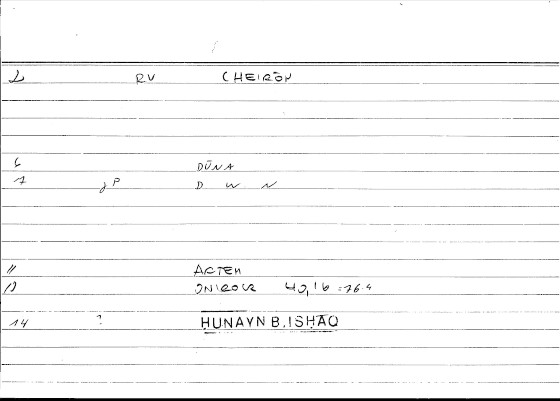 2 RV CHEIRŌN
6 DŪNA
7 gP D W N
11 ARTEM
12 ONIROCR 40,16 =76.4
14 ? HUNAYN B. ISHAQ